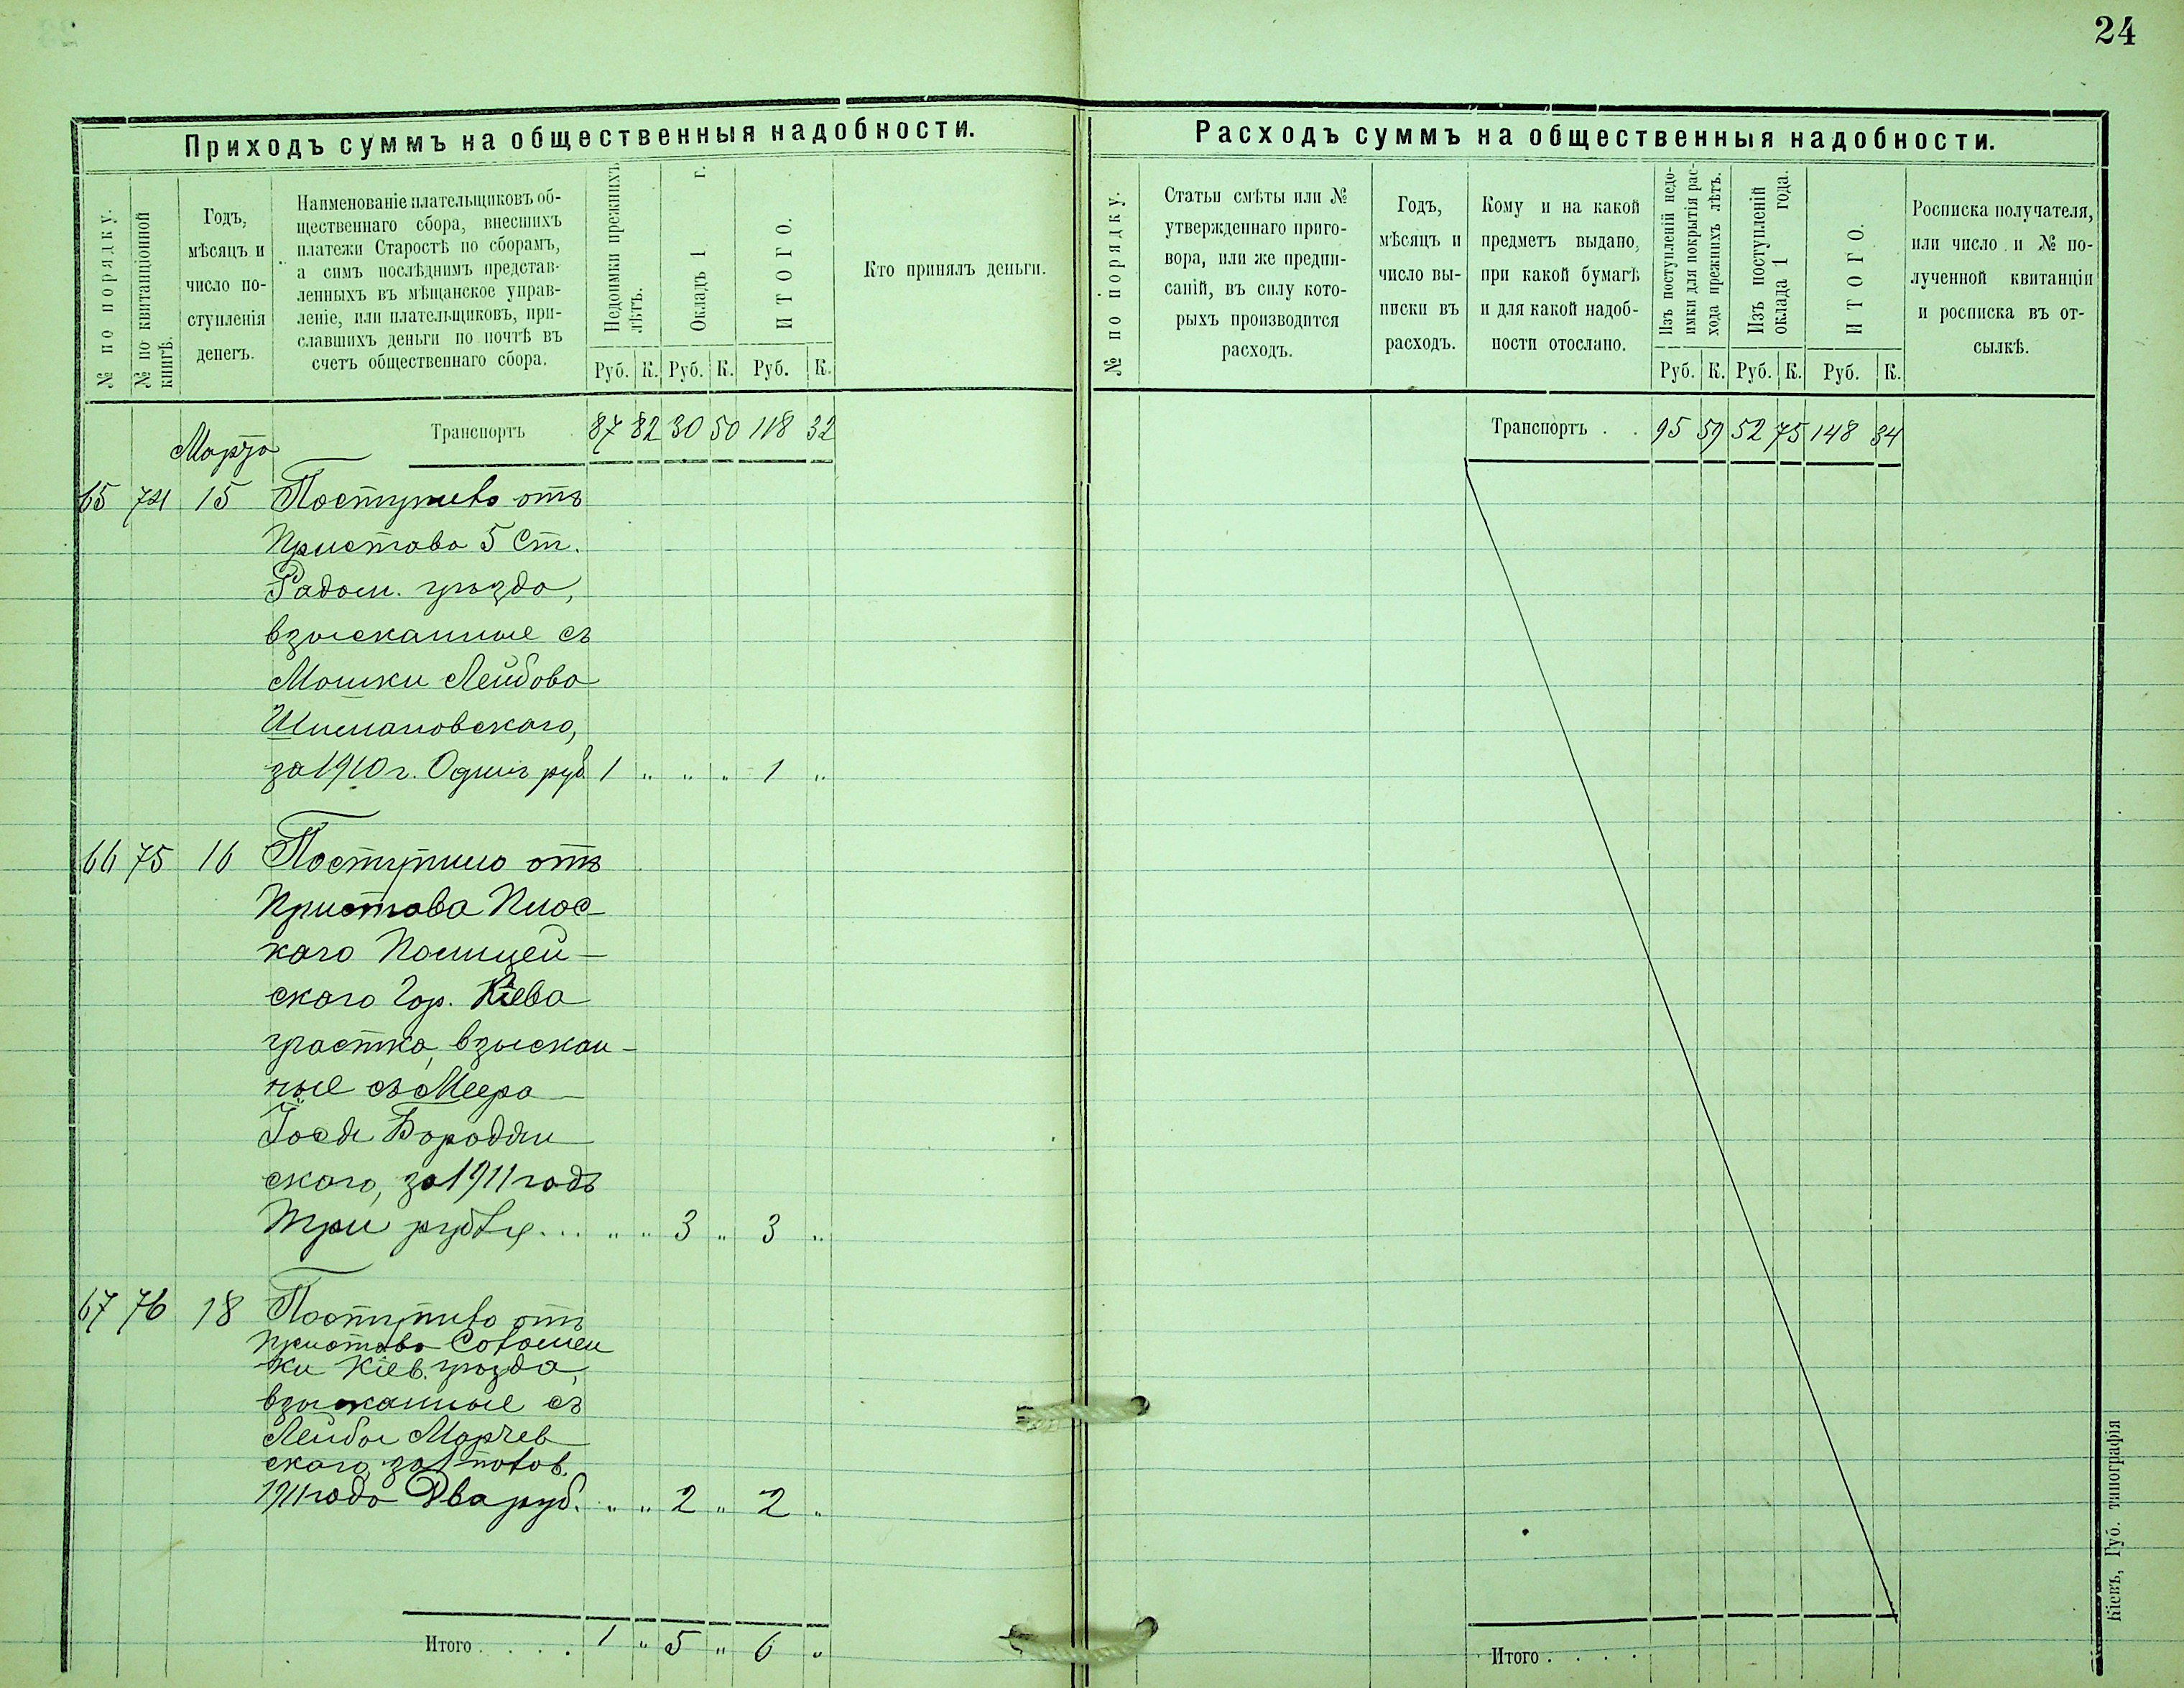 24
Приходъ суммъ на общественныя надобности.
№ по порядку.
№ по квитанціонной
книгѣ.
Годъ,
мѣсяцъ и
число по-
ступленія
денегъ.
Наименованіе плательщиковъ об-
щественнаго сбора, внесшихъ
платежи Старостѣ по сборамъ,
а симъ послѣднимъ представ-
ленныхъ въ мѣщанское управ-
леніе, или плательщиковъ, при-
славшихъ деньги по почтѣ въ
счетъ общественнаго сбора.
Недоимки прежнихъ
лѣтъ.
Окладъ 1 г.
ИТОГО.
Руб. К. Руб. К. Руб. К.
Кто принялъ деньги.
Транспортъ 87 82 30 50 118 32
Марта
65 74 15 Поступило отъ
Пристава 5 Ст.
Радом. уѣзда,
взысканные съ
Мошки Лейбова
Шимановскаго,
за 1910 г. Одинъ руб. 1 " " " 1 "
66 75 16 Поступило отъ
Пристава Плос-
каго Полицей-
скаго Гор. Кіева
участка, взыскан-
ные съ Меера
Іося Бородян
скаго, за 1911 годъ
Три рубля... " " 3 " 3 "
67 76 18 Поступило отъ
Пристава Соломен
ки Кіев. уѣзда,
взысканные съ
Лейбы Марчев
скаго, за 1 полов.
1911 года Два руб. " " 2 " 2 "
Итого.... 1 " 5 " 6 "
Расходъ суммъ на общественныя надобности.
№ по порядку.
Статьи смѣты или №
утвержденнаго приго-
вора, или же предпи-
саній, въ силу кото-
рыхъ производится
расходъ.
Годъ,
мѣсяцъ и
число вы-
писки въ
расходъ.
Кому и на какой
предметъ выдано,
при какой бумагѣ
и для какой надоб-
ности отослано.
Изъ поступленій недо-
имки для покрытія рас-
хода прежнихъ лѣтъ.
Изъ поступленій
оклада 1 года.
ИТОГО.
Руб. К. Руб. К. Руб. К.
Росписка получателя,
или число и № по-
лученной квитанціи
и росписка въ от-
сылкѣ.
Транспортъ . . 95 59 52 75 148 34
Итого....
Кіевъ, Губ. типографія